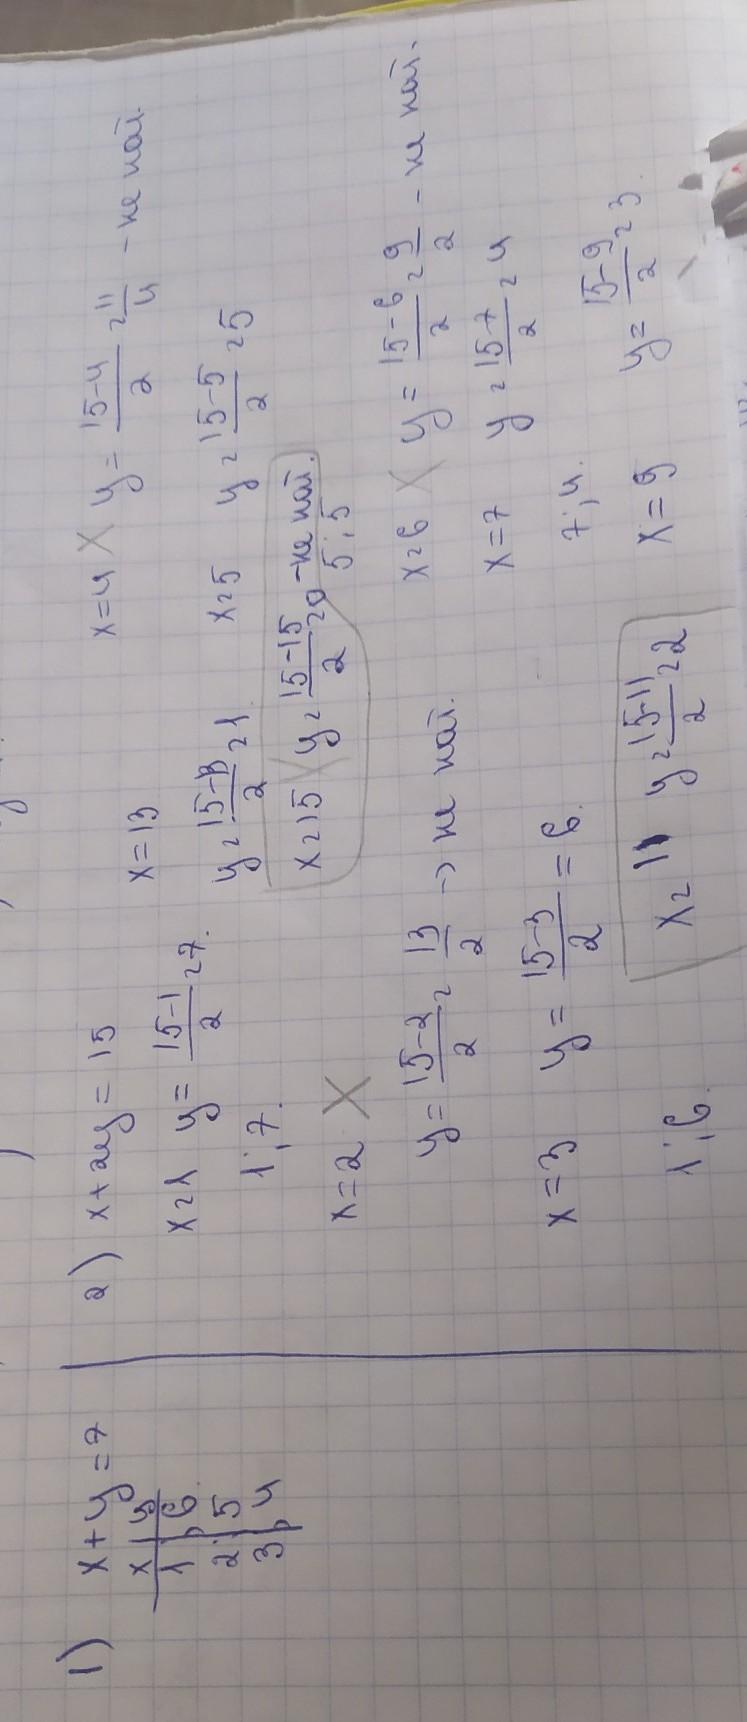 1) x+y=7
x | y
1 | 6
2 | 5
3 | 4
2) x+2y=15
x=1 y=\frac{15-1}{2}=7.
1;7.
x=2 X
y=\frac{15-2}{2}=\frac{13}{2} → не нат.
x=3 y=\frac{15-3}{2}=6.
1;6.
x=13
y=\frac{15-13}{2}=1.
x=15 X y=\frac{15-15}{2}=0 -не нат.
x=11 y=\frac{15-11}{2}=2
x=4 X y=\frac{15-4}{2}=\frac{11}{4} - не нат.
x=5 y=\frac{15-5}{2}=5
5;5
x=6 X y=\frac{15-6}{2}=\frac{9}{2} - не нат.
x=7 y=\frac{15-7}{2}=4
7;4.
x=9 y=\frac{15-9}{2}=3.